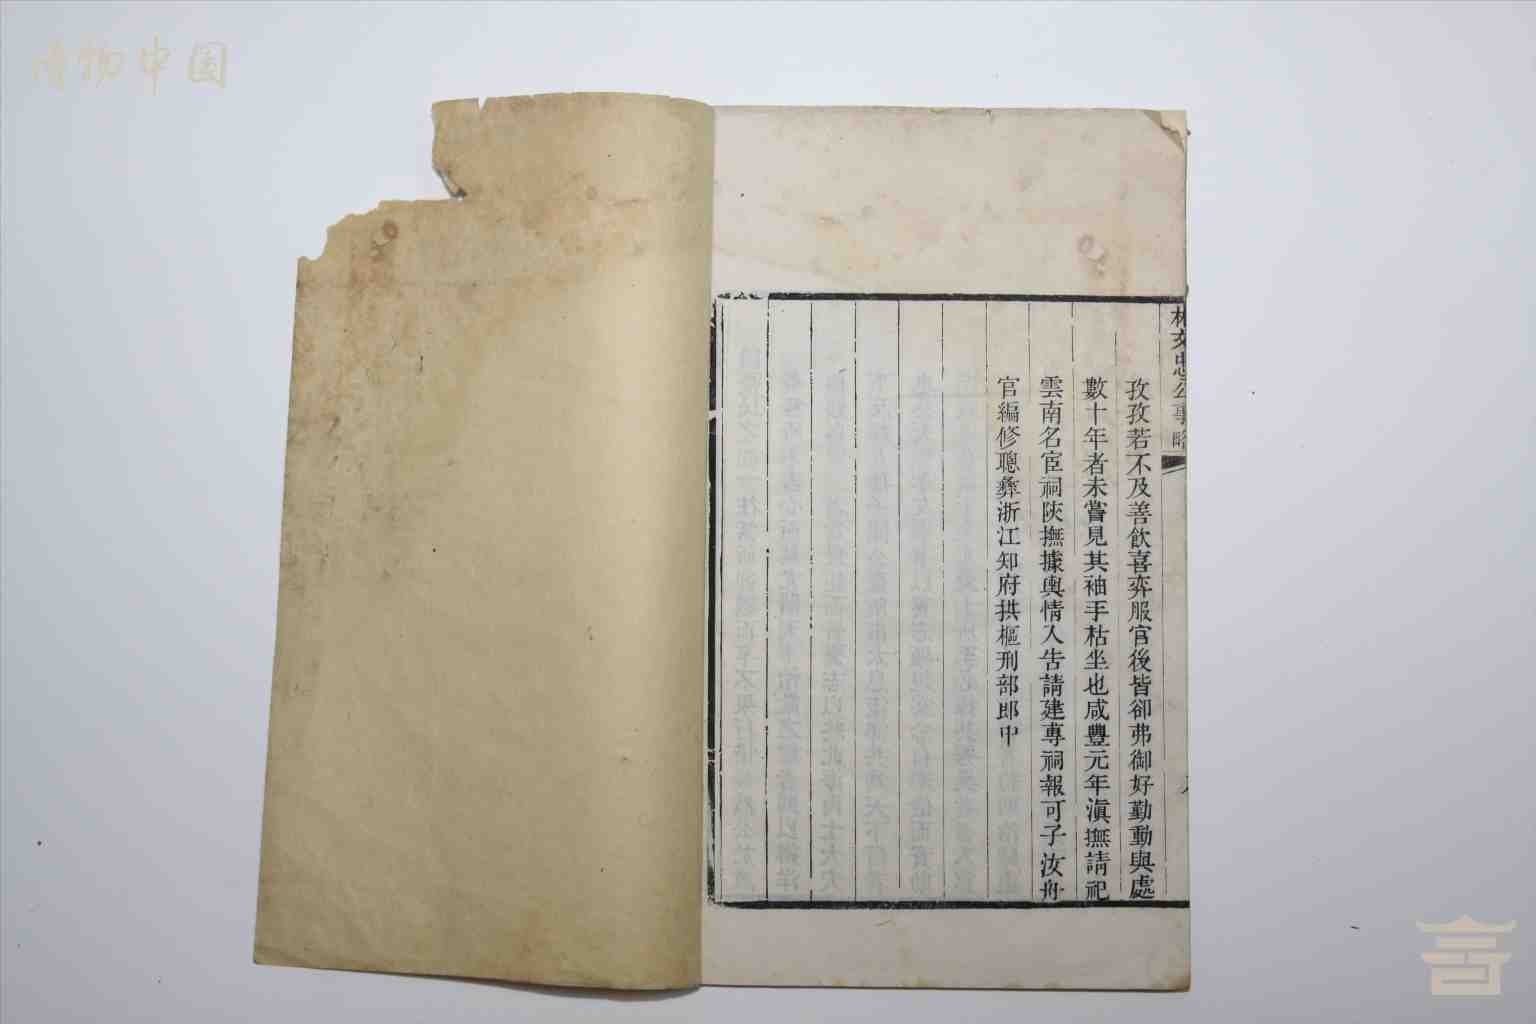 博物中国
林文忠公事略
孜孜若不及善飲喜弈服官後皆卻弗御好勤動與處
數十年者未嘗見其袖手枯坐也咸豐元年滇撫請祀
雲南名宦祠陝撫據輿情入告請建專祠報可子汝舟
官編修聰彝浙江知府拱樞刑部郎中